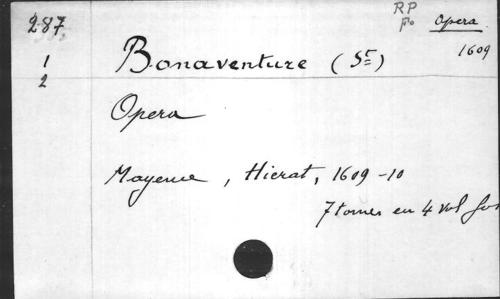 287. RP Opera
Fo
1 Bonaventure (St) 1609
2
Opera
Mayence, Hierat, 1609-10
7 tomes en 4 vol